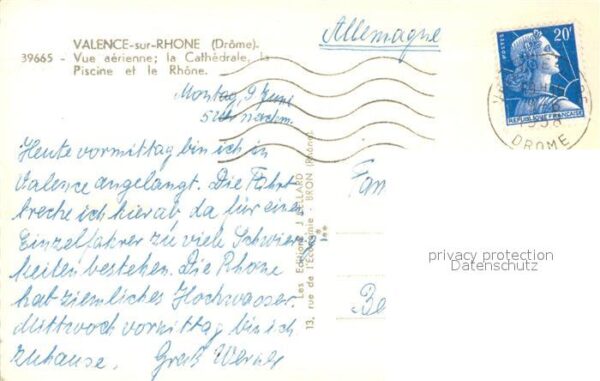 VALENCE-sur-RHONE (Drôme).
39665 - Vue aérienne; la Cathédrale, la
Piscine et le Rhône.
Allemagne
POSTES 20F
REPUBLIQUE FRANÇAISE
DROME
Montag, 9 Juni
5 Uhr nachm.
Heute vormittag bin ich in
Valence angelangt. Die Fahrt
breche ich hier ab, da für einen
Einzelfahrer zu viele Schwierig
keiten bestehen. Die Rhone
hat ziemliches Hochwasser.
Mittwoch vormittag bin ich
zuhause. Gruß Werner
Les Editions J. CELLARD
13, rue de l'Economie - BRON (Rhône)
Fam
Be
privacy protection
Datenschutz